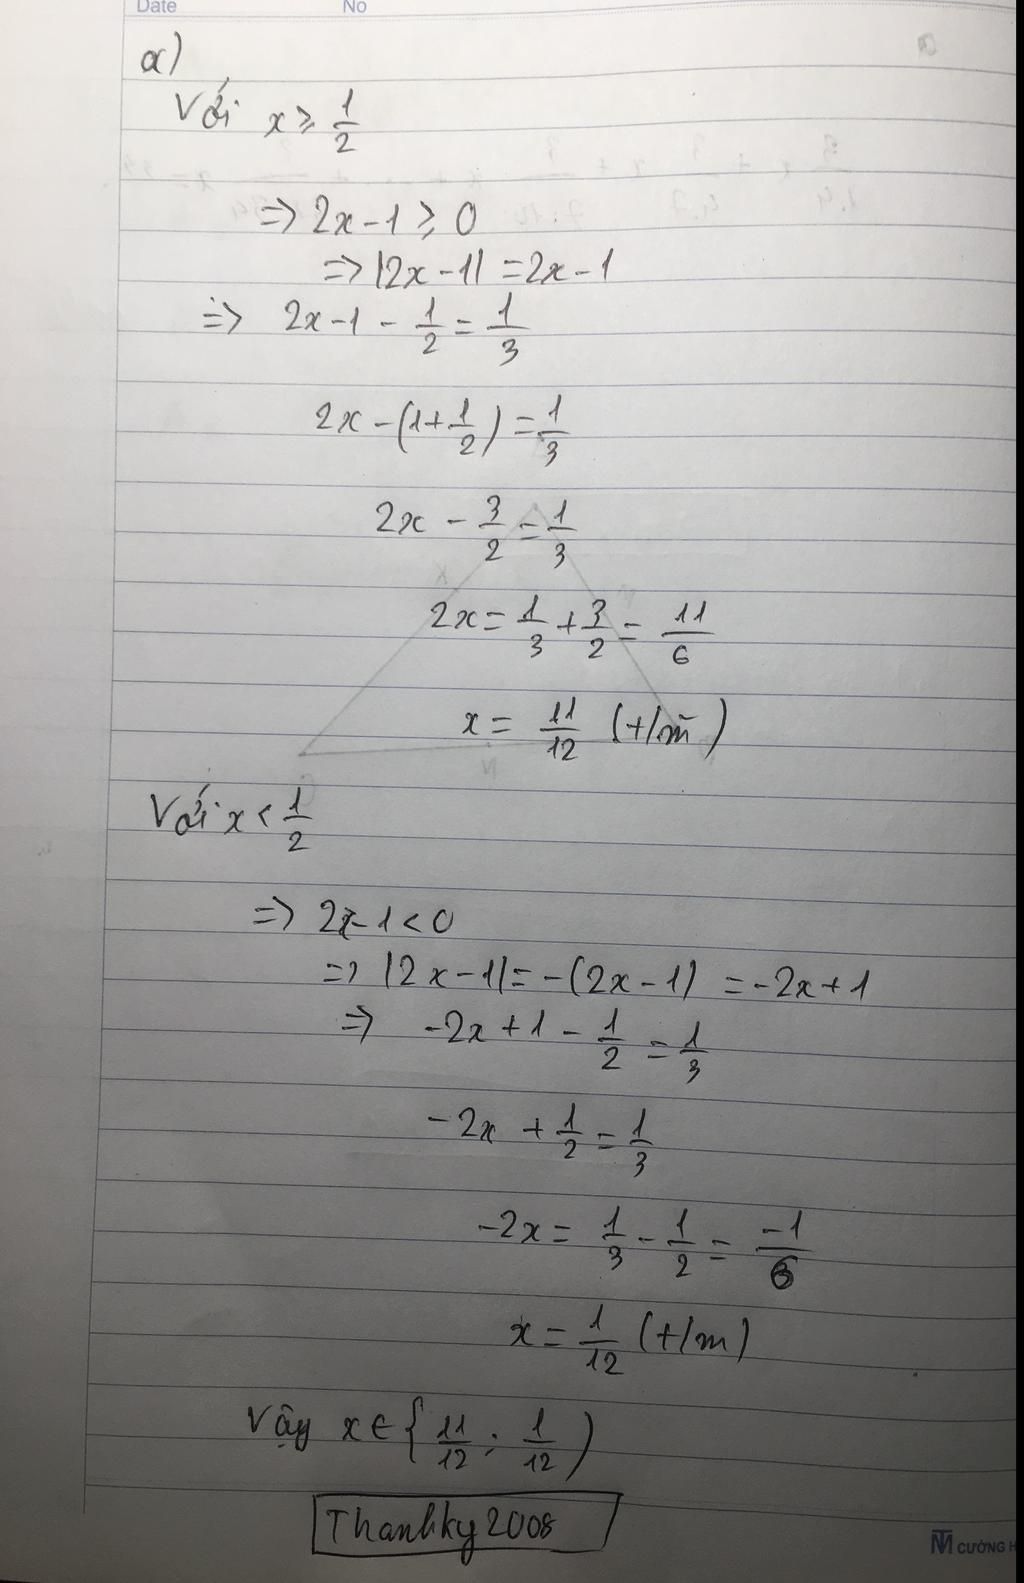 Date No
a)
Với x ≥ 1/2
=> 2x - 1 ≥ 0
=> |2x - 1| = 2x - 1
=> 2x - 1 - 1/2 = 1/3
2x - (1 + 1/2) = 1/3
2x - 3/2 = 1/3
2x = 1/3 + 3/2 = 11/6
x = 11/12 (t/m)
Với x < 1/2
=> 2x - 1 < 0
=> |2x - 1| = -(2x - 1) = -2x + 1
=> -2x + 1 - 1/2 = 1/3
-2x + 1/2 = 1/3
-2x = 1/3 - 1/2 = -1/6
x = 1/12 (t/m)
Vậy x ∈ {11/12 ; 1/12)
Thanhky2008
CƯỜNG H